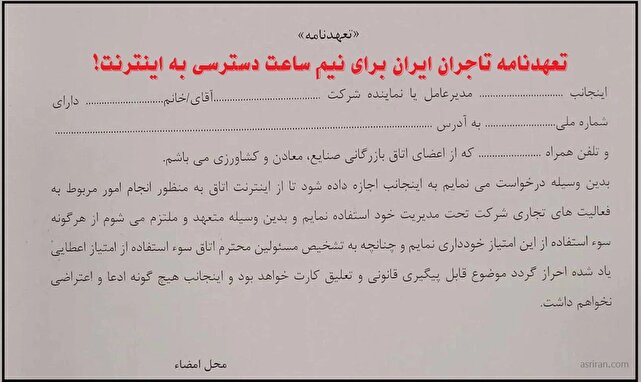 «تعهدنامه»
تعهدنامه تاجران ایران برای نیم ساعت دسترسی به اینترنت!
اینجانب .................... مدیرعامل یا نماینده شرکت ................................آقای/خانم.................... دارای
شماره ملی.................. به آدرس ................................................................................
و تلفن همراه ................ که از اعضای اتاق بازرگانی صنایع، معادن و کشاورزی می باشم.
بدین وسیله درخواست می نمایم به اینجانب اجازه داده شود تا از اینترنت اتاق به منظور انجام امور مربوط به
فعالیت های تجاری شرکت تحت مدیریت خود استفاده نمایم و بدین وسیله متعهد و ملتزم می شوم از هرگونه
سوء استفاده از این امتیاز خودداری نمایم و چنانچه به تشخیص مسئولین محترم اتاق سوء استفاده از امتیاز اعطایی
یاد شده احراز گردد موضوع قابل پیگیری قانونی و تعلیق کارت خواهد بود و اینجانب هیچ گونه ادعا و اعتراضی
نخواهم داشت.
محل امضاء
asriran.com